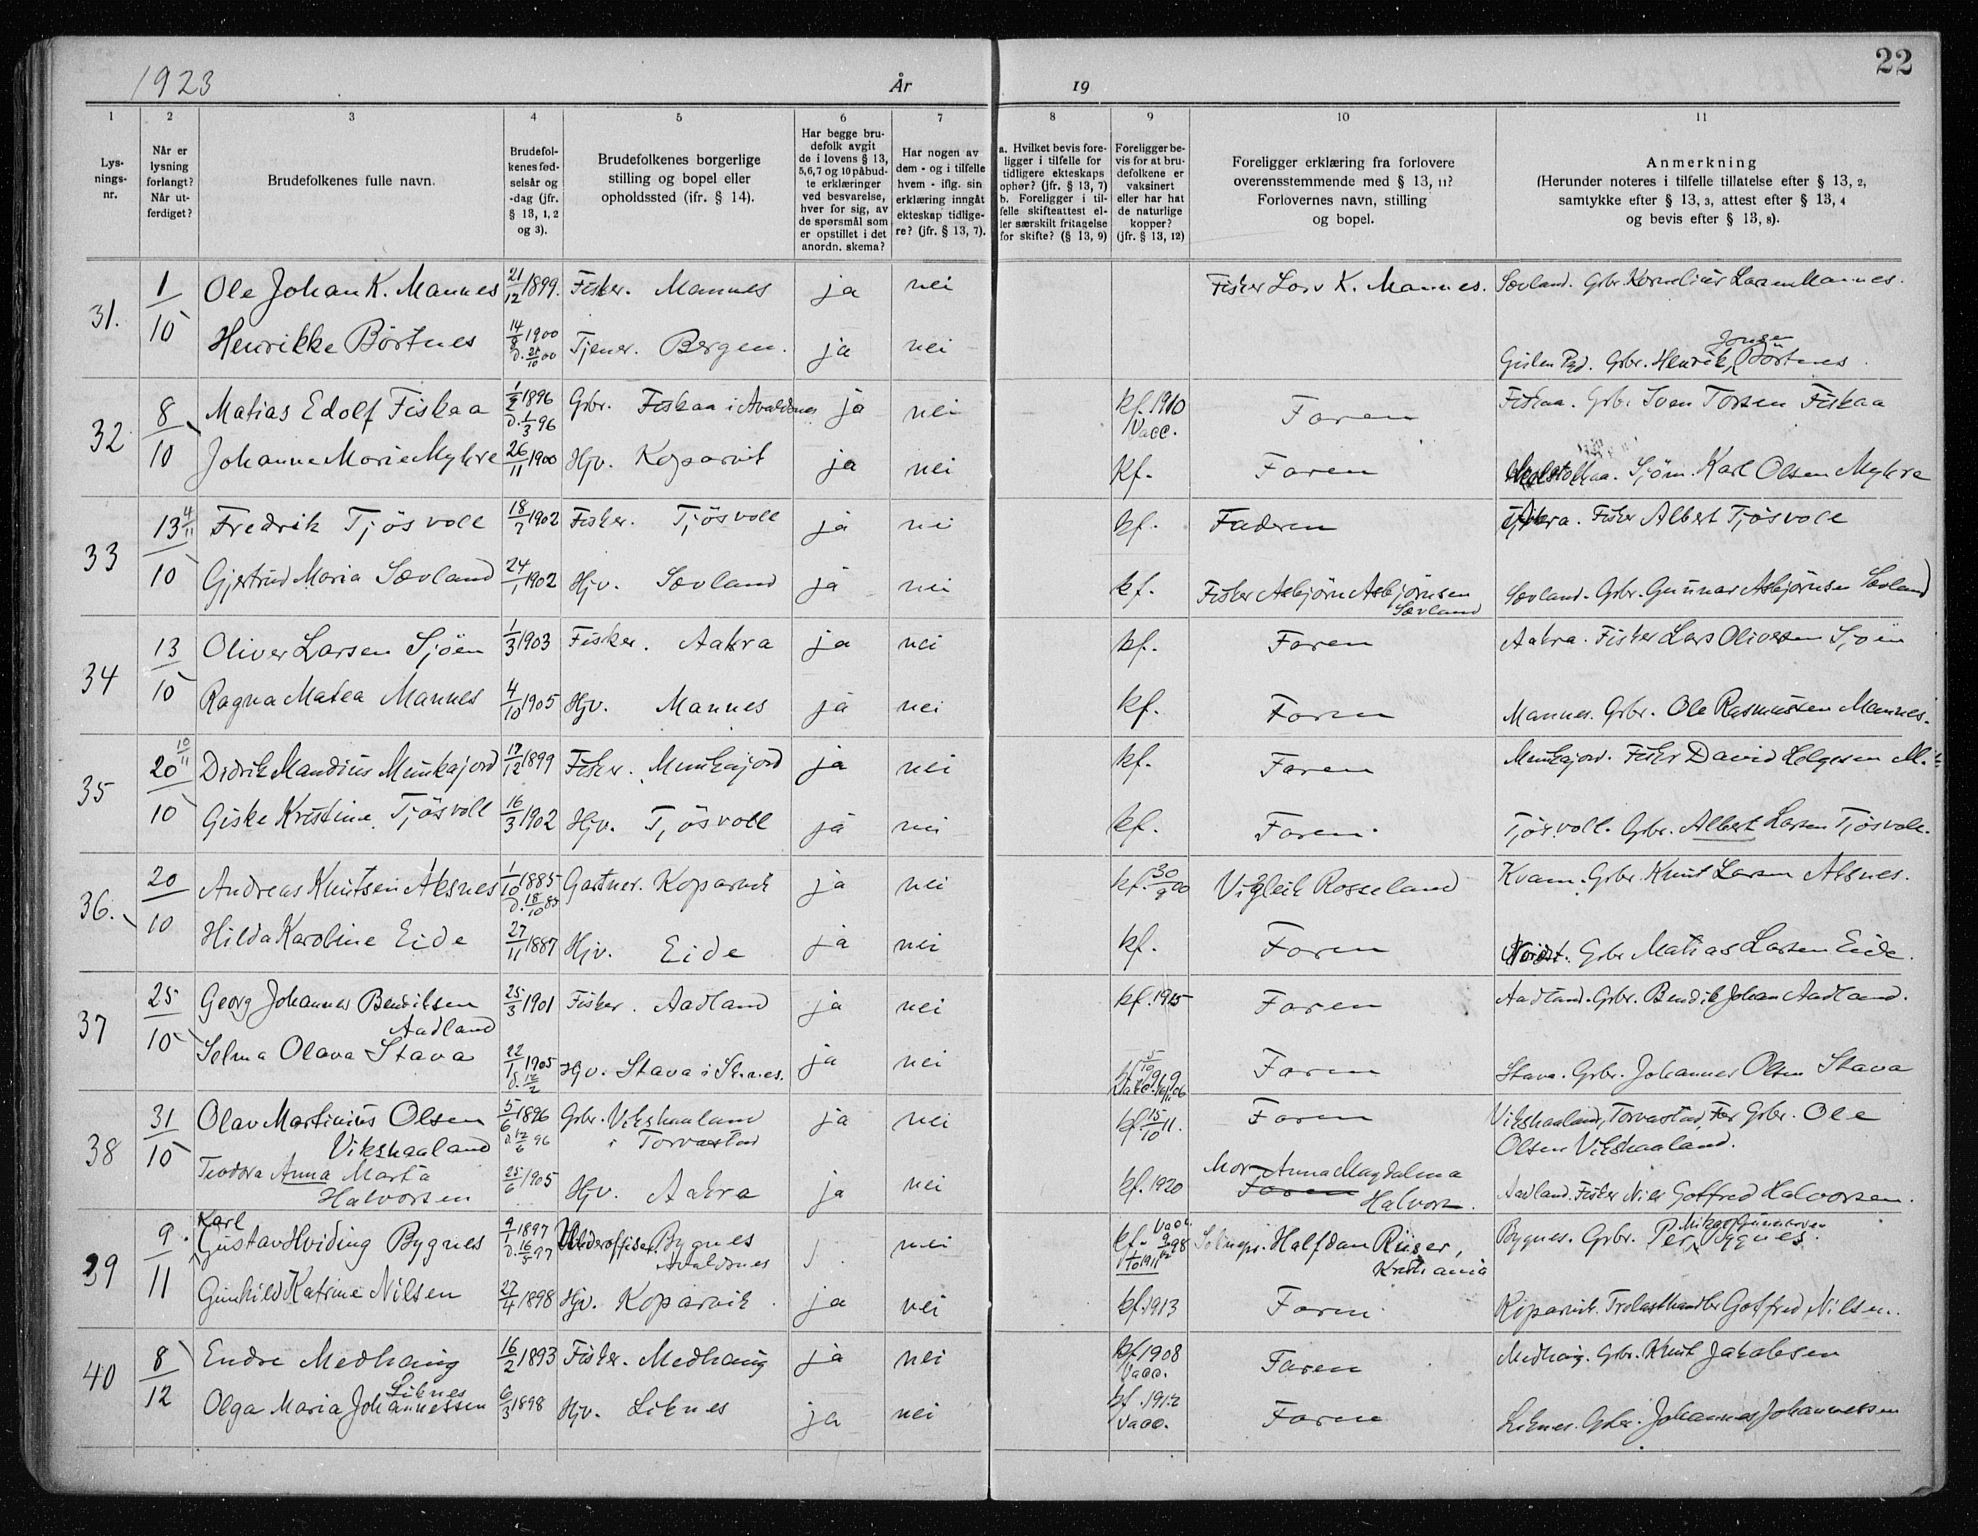 22
1923 År 19
1 2 3 4 5 6 7 8 9 10 11
Lysningsnr.
Når er lysning forlangt? Når utferdiget?
Brudefolkenes fulle navn.
Brudefolkenes fødselsår og -dag (jfr. § 13, 1, 2 og 3).
Brudefolkenes borgerlige stilling og bopel eller opholdssted (ifr. § 14).
Har begge brudefolk avgit de i lovens § 13, 5,6,7 og 10 påbudte erklæringer ved besvarelse, hver for sig, av de spørsmål som er opstillet i det anordn. skema?
Har nogen av dem - og i tilfelle hvem - iflg. sin erklæring inngåt ekteskap tidligere? (jfr. § 13, 7).
a. Hvilket bevis foreligger i tilfelle for tidligere ekteskaps ophør? (jfr. § 13, 7) b. Foreligger i tilfelle skifteattest eller særskilt fritagelse for skifte? (§ 13, 9)
Foreligger bevis for at brudefolkene er vaksinert eller har hat de naturlige kopper? (jfr. § 13, 12)
Foreligger erklæring fra forlovere overensstemmende med § 13, 11? Forlovernes navn, stilling og bopel.
Anmerkning (Herunder noteres i tilfelle tillatelse efter § 13, 2, samtykke efter § 13, 3, attest efter § 13, 4 og bevis efter § 13, 8).
31. 1/10 Ole Johan K. Mannes 21/12 1899. Fisker. Mannes ja nei Fisker Lars K. Mannes. Sævland. Gbr. Kornelius Larsen Mannes.
Henrikke Børtnes 14/9 1900 Tjener. Bergen. ja nei Gbr. Henrik Jonsen Børtnes.
32 8/10 Matias Edolf Fiskaa 1/2 1896 D. 1/3 96 Gbr. Fiskaa i Avaldsnes ja nei kf. 1910 Vacc. Faren Fiskaa. Gbr. Sven Torsen Fiskaa
Johanne Marie Myhre 26/11 1900 Hjv. Koparvik ja nei Kf. Faren Sjøm. Karl Olsen Myhre
33 13/10 4/11 Fredrik Tjösvoll 18/7 1902 Fisker. Tjösvoll ja nei kf. Faderen Aakra. Fisker Albert Tjösvoll
Gjertrud Maria Sævland 24/1 1902 Hjv. Sævland ja nei kf. Fisker Asbjørn Asbjørnsen Sævland Sævland. Gbr. Gunnar Asbjørnsen Sævland
34 13/10 Oliver Larsen Sjöen 1/3 1903 Fisker. Aakra ja nei kf. Faren Aakra. Fisker Lars Olivesen Sjöen
Ragna Matea Mannes 4/10 1905 Hjv. Mannes ja nei kf. Faren Mannes. Gbr. Ole Rasmussen Mannes.
35 20/10 10/11 Didrik Mandius Munkajord 17/12 1899 Fisker. Munkajord ja nei kf. Faren Munkajord. Fisker David Helgesen M.
Giske Kristine Tjösvoll 16/3 1902 Hjv. Tjösvoll ja nei kf. Faren. Tjösvoll. Gbr. Albert Larsen Tjösvoll.
36. 20/10 Andreas Knutsen Aksnes 1/10 1885 D. 18/10 85 Gartner. Koparvik ja nei kf. 30/9 00 Vigleik Rosseland Kvam. Gbr. Knut Larsen Aksnes.
Hilda Karoline Eide 27/11 1887 Hjv. Eide ja nei kf. Faren Gbr. Matias Larsen Eide.
37 25/10 Georg Johannes Bendiksen Aadland 25/3 1901 Fisker. Aadland ja nei kf. 1915 Faren Aadland. Gbr. Bendik Johan Aadland.
Selma Olava Stava 22/1 1905 D. 12/2 Hjv. Stava i Skaanes. ja nei kf 5/10 1919 Faren Stava. Gbr. Johannes Olsen Stava
38 31/10 Olav Martinius Olsen Vikshaaland 5/6 1896 D. 12/6 96 Gbr. Vikshaaland i Torvastad ja nei kf. 15/10 11. Faren Vikshaaland, Torvastad, Far Gbr. Ole Olsen Vikshaaland.
Teodora Anna Marta Halvorsen 25/6 1905 Hjv. Aakra ja nei kf. 1920 Mor Anna Magdalena Halvors. Faren Aadland. Fisker Nils Gotfred Halvorsen.
39 9/11 Karl Gustav Hviding Bygnes 9/1 1897 D. 16/5 97 Underoffiser. Bygnes Avaldsnes j. nei kf. Vacc. 2/9 98 1/10 1911 Halfdan Riiser, Kristiania Bygnes. Gbr. Per Mikael Gunnarsen Bygnes.
Gunhild Katrine Nilsen 27/4 1898 Hjv. Koparvik ja nei kf. 1913 Faren Koparvik. Trelasthandler Gotfred Nilsen.
40 8/12 Endre Medhaug 16/2 1893 Fisker. Medhaug ja nei kf 1908 Vacc. Faren Medhaug. Gbr. Knut Jakobsen
Olga Maria Johannessen Liknes 6/3 1898 Hjv. Liknes ja nei kf. 1912 Vacc. Faren Liknes. Gbr. Johannes Johannessen